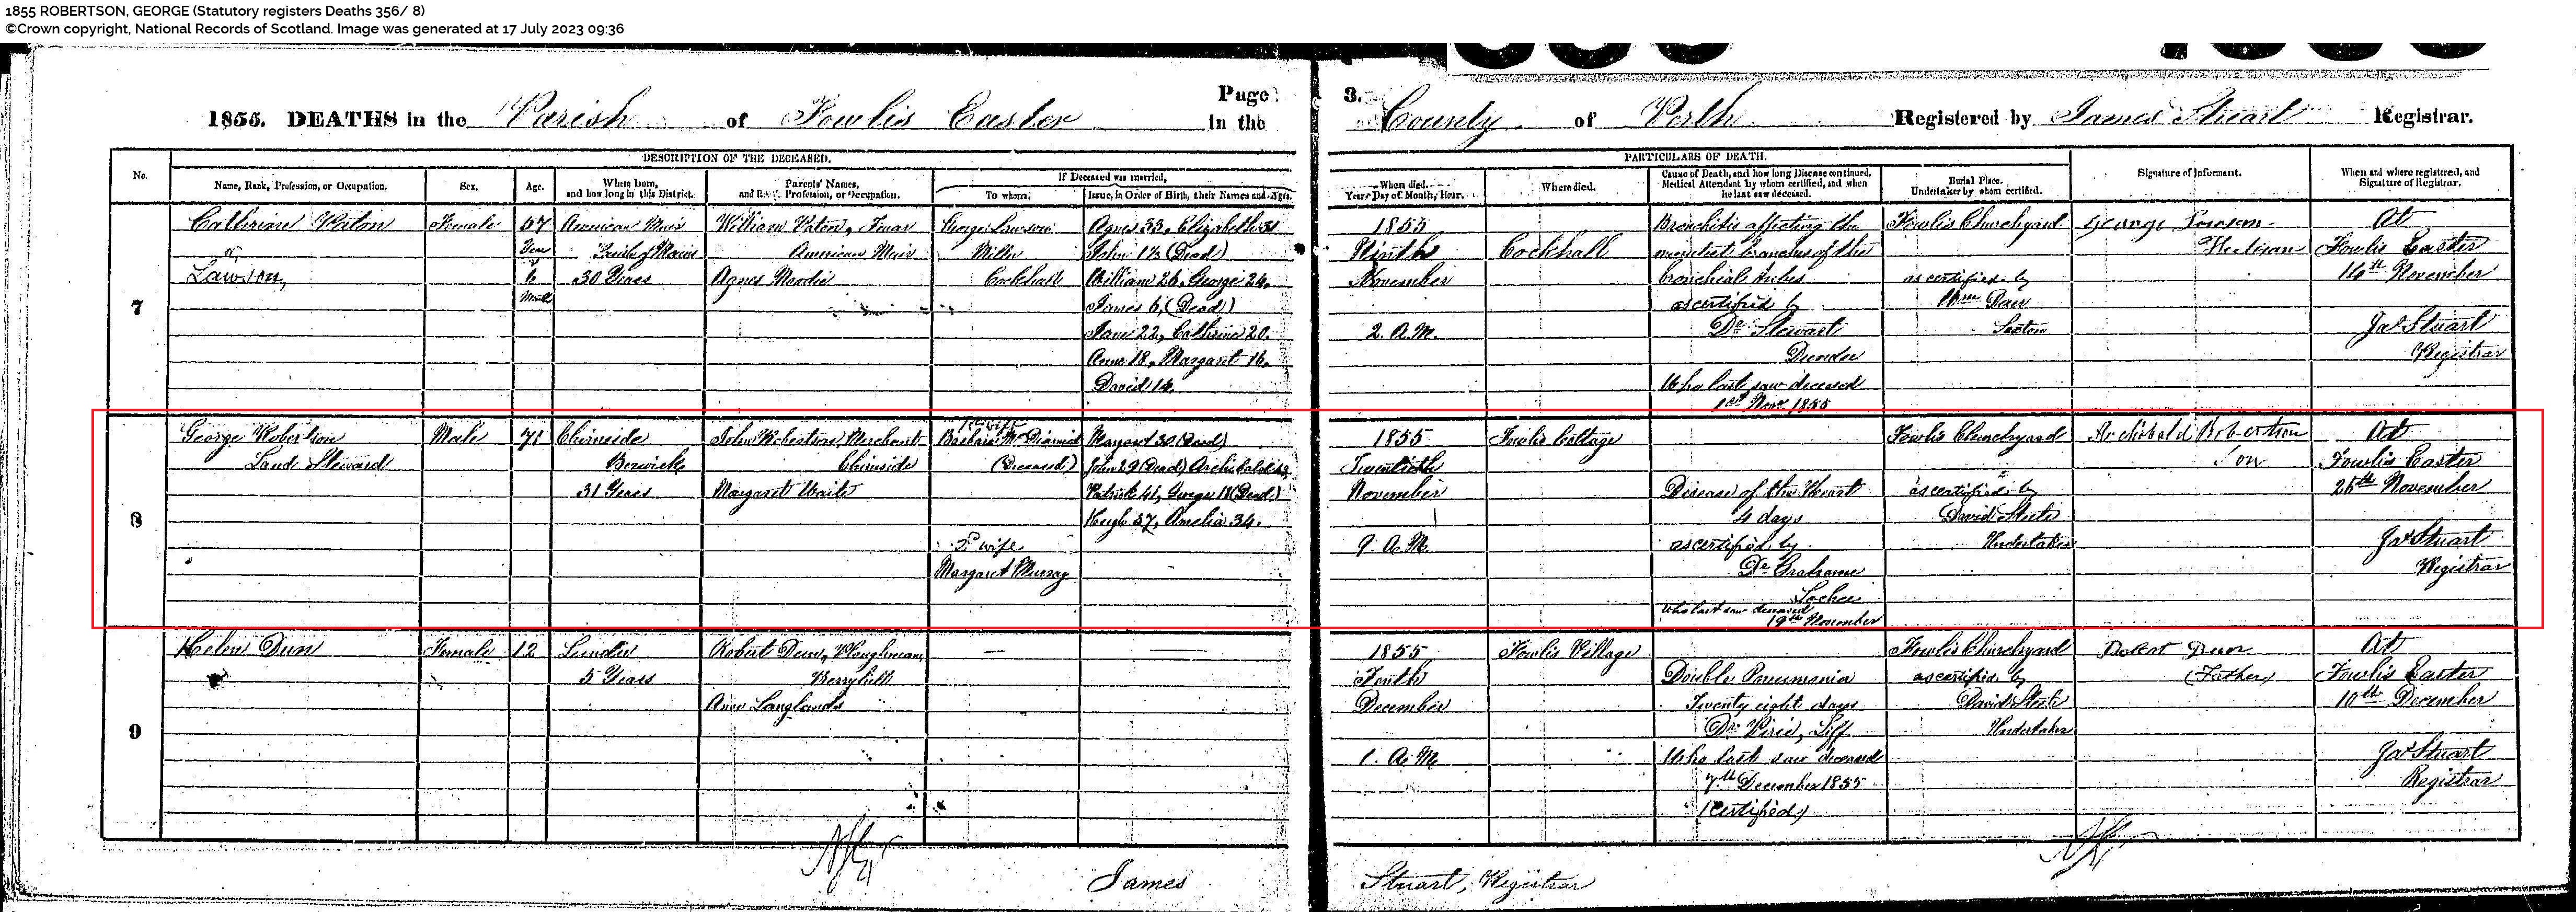 1855 ROBERTSON, GEORGE (Statutory registers Deaths 356/ 8)
©Crown copyright, National Records of Scotland. Image was generated at 17 July 2023 09:36
Page 3.
1855. DEATHS in the Parish of Fowlis Easter in the County of Perth Registered by James Stuart Registrar.
DESCRIPTION OF THE DECEASED.
PARTICULARS OF DEATH.
No.
Name, Rank, Profession, or Occupation.
Sex.
Age.
Where born,
and how long in this District.
Parents' Names,
and Profession, or Occupation.
If Deceased was married,
To whom.
Issue, in Order of Birth, their Names and Ages.
When died.
Year, Day of Month, Hour.
Where died.
Cause of Death, and how long Disease continued,
Medical Attendant by whom certified, and when
he last saw deceased.
Burial Place.
Undertaker by whom certified.
Signature of Informant.
When and where registered, and
Signature of Registrar.
7
Catherine Paton
or
Lawson,
Female
57
6
American Muir
30 Years
William Paton, Feuar
American Muir
Agnes Moodie
George Lawson
Miller
Cockhall
Agnes 33, Elizabeth 31
John 1½ (Dead)
William 26, George 24,
James 6, (Dead)
Jane 22, Catherine 20,
Anne 18, Margaret 16,
David 14.
1855
Ninth
November
2. A.M.
Cockhall
Bronchitis affecting the
minutest branches of the
bronchial tubes
as certified by
Dr. Stewart
Dundee
Who last saw deceased
1st Novr 1855
Fowlis Churchyard
as certified by
Sexton
George Lawson
At
Fowlis Easter
14th November
Jas Stuart
Registrar
8
George Robertson
Land Steward
Male
71
Chirnside
Berwick
31 Years
John Robertson, Merchant
Chirnside
Margaret Waite
1st wife
Barbara McDiarmid
(Deceased)
2d wife
Margaret Murray
Margaret 30 (Dead)
John 29 (Dead) Archibald
Patrick 41, George 18 (Dead)
Hugh 37, Amelia 34.
1855
Twentieth
November
9. A.M.
Fowlis Cottage
Disease of the Heart
4 days
as certified by
Dr Grahame
Lochee
Who last saw deceased
19th November
Fowlis Churchyard
as certified by
David
Undertaker
Archibald Robertson
Son
At
Fowlis Easter
26th November
Jas Stuart
Registrar
9
Helen Dun
Female
12
Lundie
5 Years
Robert Dun, Ploughman,
Berryhill
Ann Langlands
—
—
1855
Tenth
December
1. A.M.
Fowlis Village
Double Pneumonia
Twenty eight days
Dr Pirie, Liff
Who last saw deceased
7th December 1855
(Certified)
Fowlis Churchyard
as certified by
David
Undertaker
Robert Dun
(Father)
At
Fowlis Easter
10th December
Jas Stuart
Registrar
James Stuart, Registrar